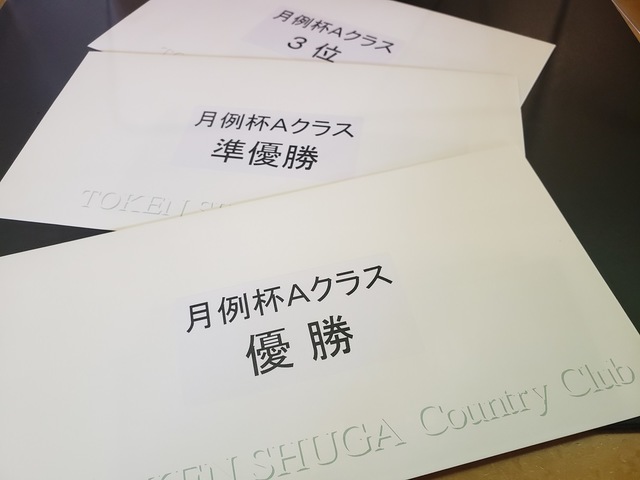 月例杯Aクラス
3位
月例杯Aクラス
準優勝
月例杯Aクラス
優勝
SHUGA Country Club